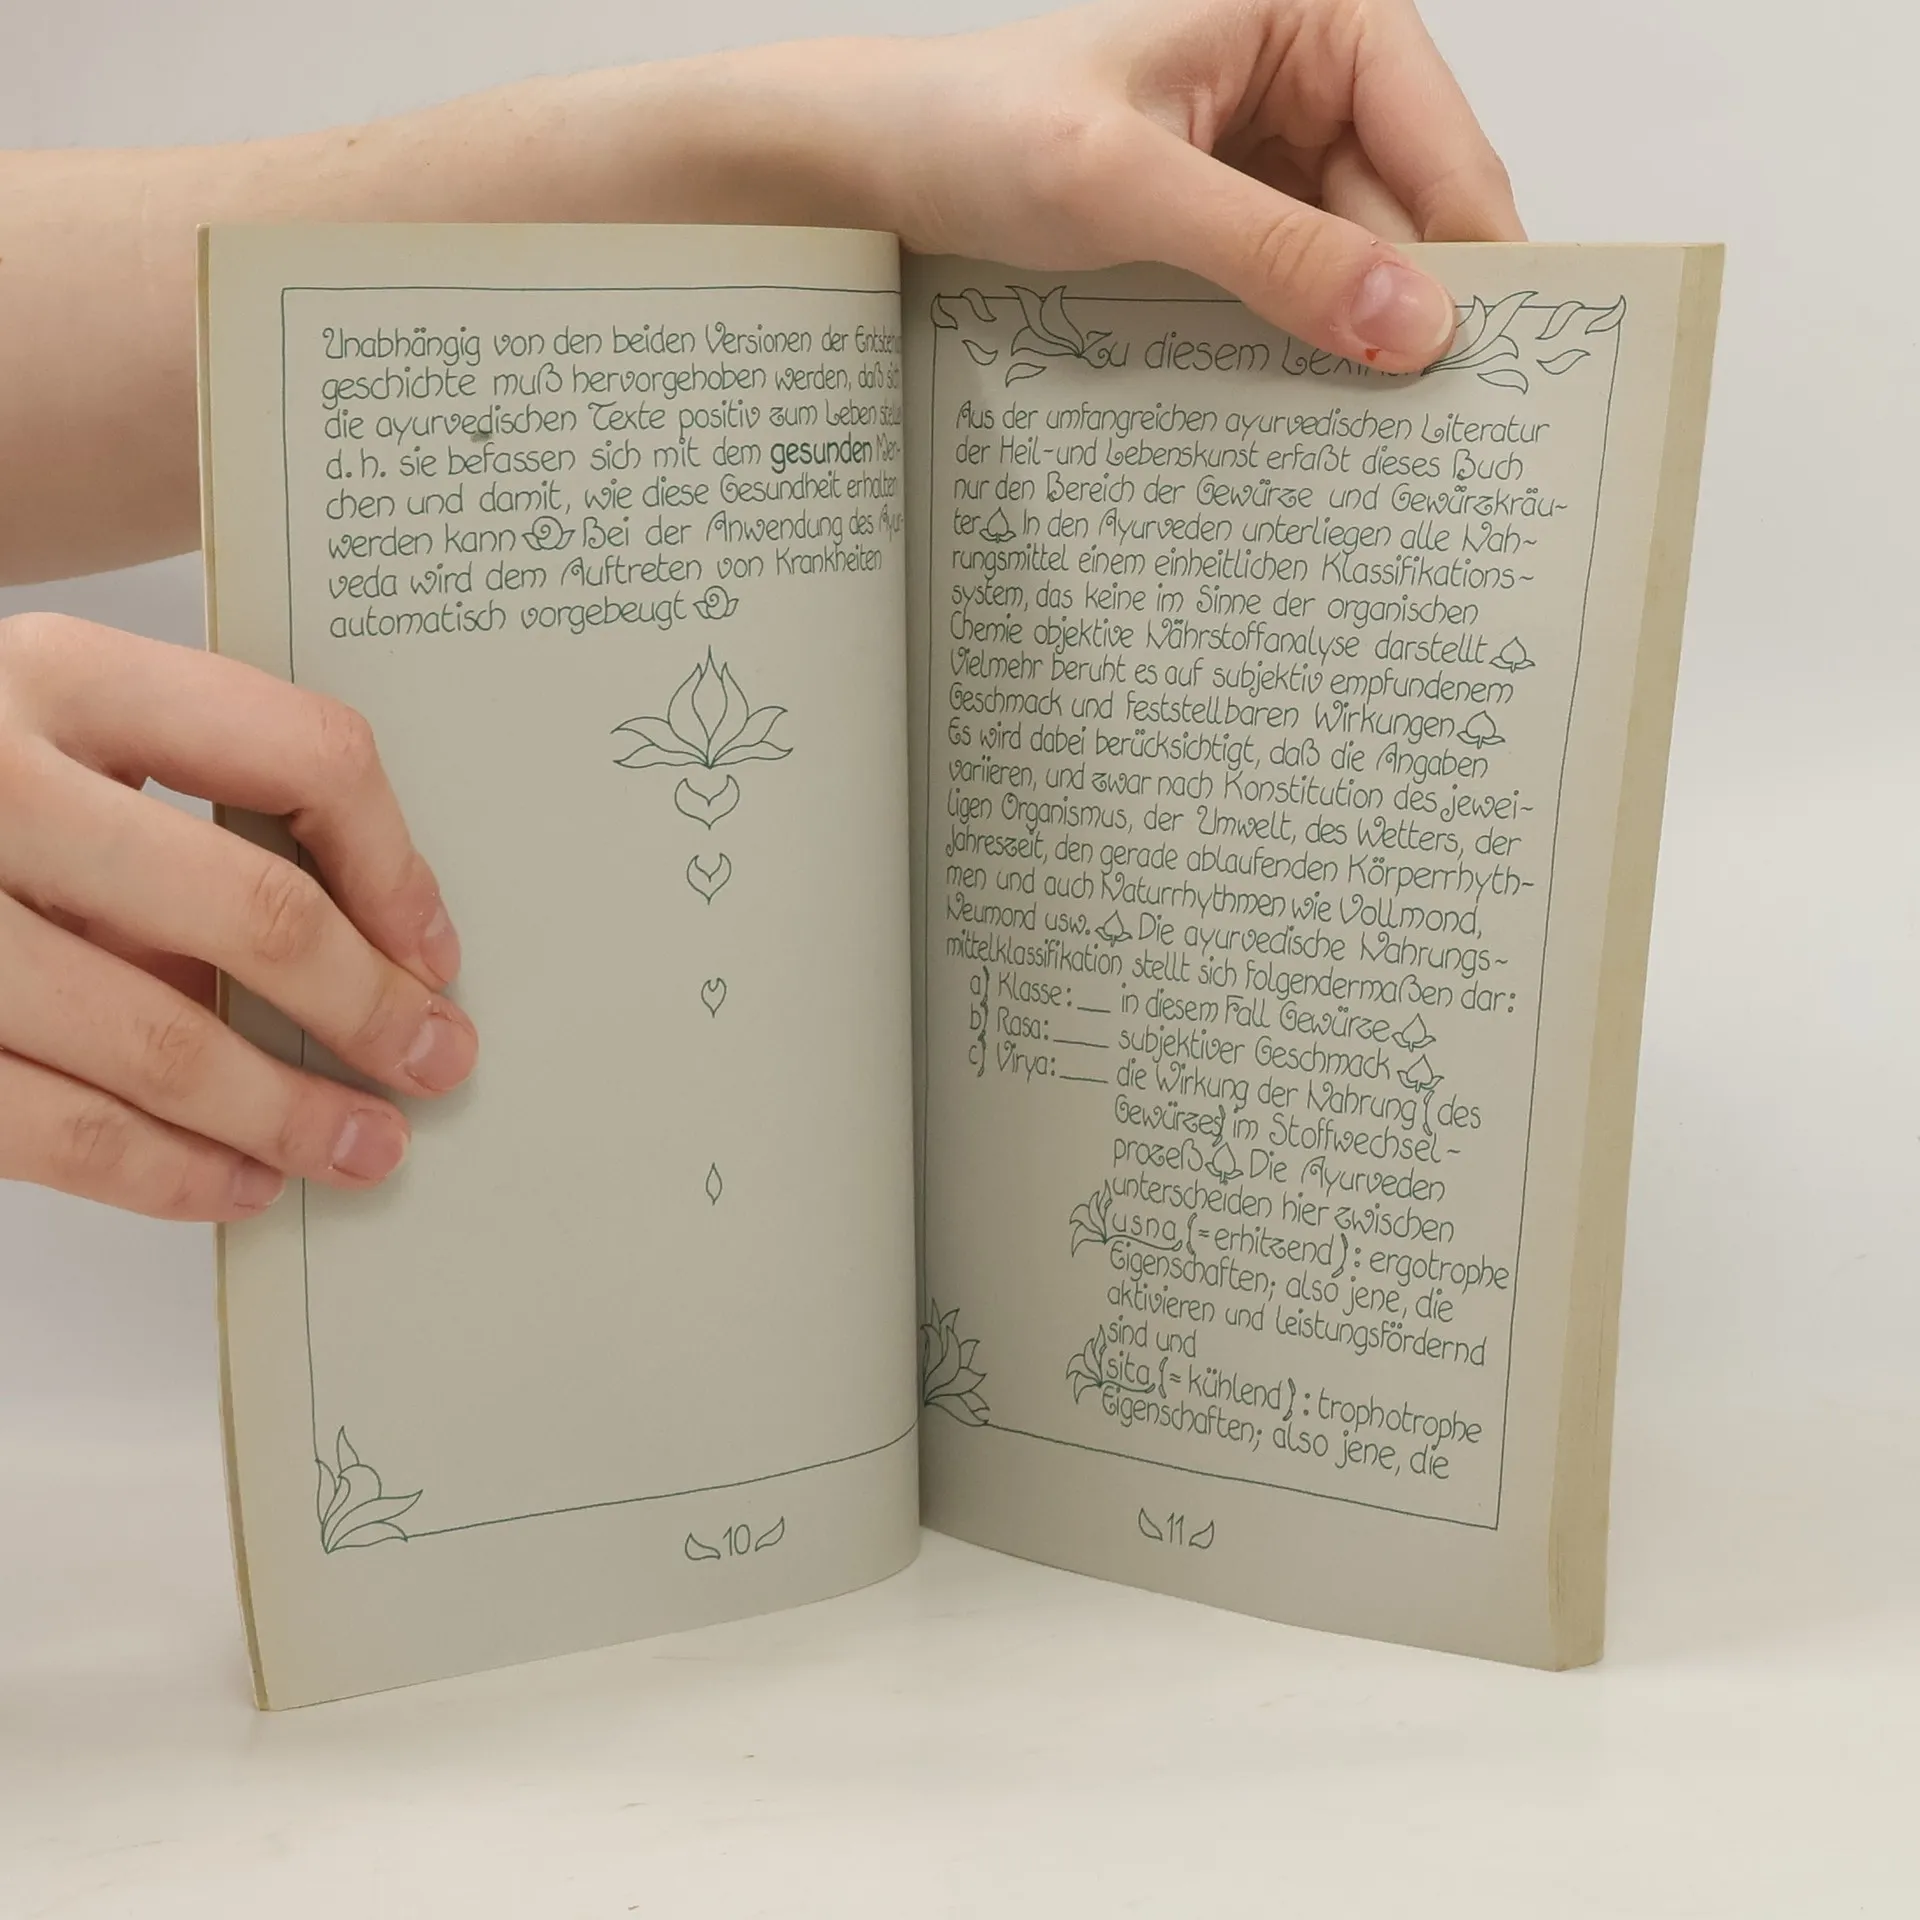 Unabhängig von den beiden Versionen der
geschichte muß hervorgehoben werden, daß sich
die ayurvedischen Texte positiv zum Leben
d.h. sie befassen sich mit dem gesunden Men-
chen und damit, wie diese Gesundheit erhalten
werden kann Bei der Anwendung des Ayur-
veda wird dem Auftreten von Krankheiten
automatisch vorgebeugt
10
Zu diesem
Aus der umfangreichen ayurvedischen Literatur
der Heil- und Lebenskunst erfaßt dieses Buch
nur den Bereich der Gewürze und Gewürzkräu-
ter In den Ayurveden unterliegen alle Nah-
rungsmittel einem einheitlichen Klassifikations-
system, das keine im Sinne der organischen
Chemie objektive Nährstoffanalyse darstellt
Vielmehr beruht es auf subjektiv empfundenem
Geschmack und feststellbaren Wirkungen
Es wird dabei berücksichtigt, daß die Angaben
variieren, und zwar nach Konstitution des jewei-
ligen Organismus, der Umwelt, des Wetters, der
Jahreszeit, den gerade ablaufenden Körperrhyth-
men und auch Naturrhythmen wie Vollmond,
Neumond usw. Die ayurvedische Nahrungs-
mittelklassifikation stellt sich folgendermaßen dar:
a) Klasse: __ in diesem Fall Gewürze
b) Rasa: ___ subjektiver Geschmack
c) Virya: ___ die Wirkung der Nahrung (des
Gewürzes) im Stoffwechsel-
prozeß Die Ayurveden
unterscheiden hier zwischen
usna (= erhitzend): ergotrophe
Eigenschaften; also jene, die
aktivieren und leistungsfördernd
sind und
sita (= kühlend): trophotrophe
Eigenschaften; also jene, die
11